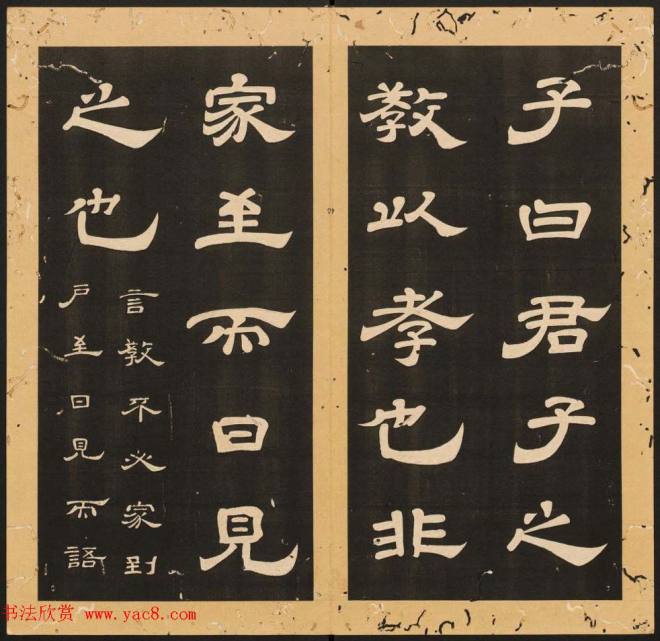 子曰君子之
教以孝也非
家至而日見
之也
言教不必家到
户至日見而語
书法欣赏 www.yac8.com